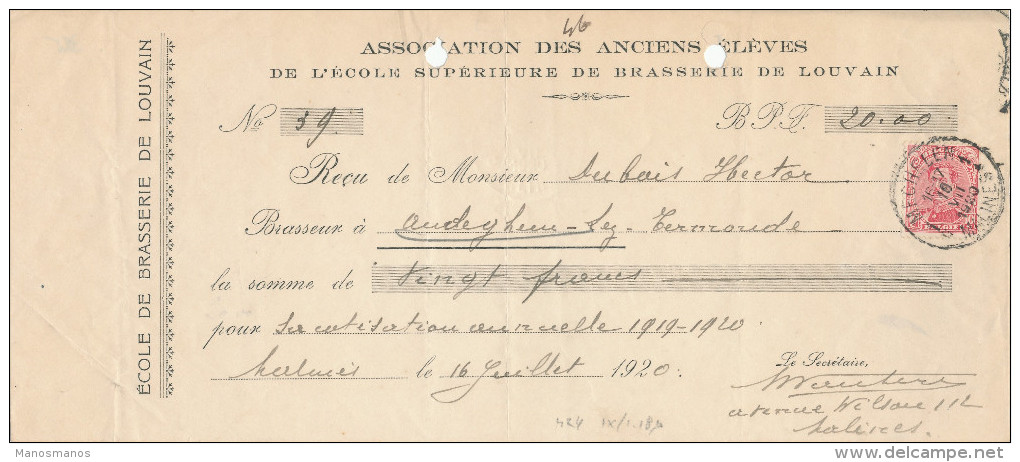 46
ASSOCIATION DES ANCIENS ÉLÈVES
DE L'ÉCOLE SUPÉRIEURE DE BRASSERIE DE LOUVAIN
ÉCOLE DE BRASSERIE DE LOUVAIN
No 39 B.P.F. 20.00
Reçu de Monsieur Dubois Hector
Brasseur à Audeghem-Lez-Termonde
la somme de Vingt francs
pour sa cotisation annuelle 1919-1920.
Malines le 16 Juillet 1920.
Le Secrétaire,
avenue Wilson 112
Malines.
424 IX/1.18
MECHELEN
1920
MALINES
Manosmanos
delcampe.net